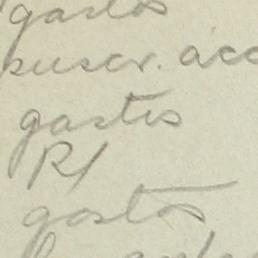 gastos
suscr. acc
gastos
R/
gastos